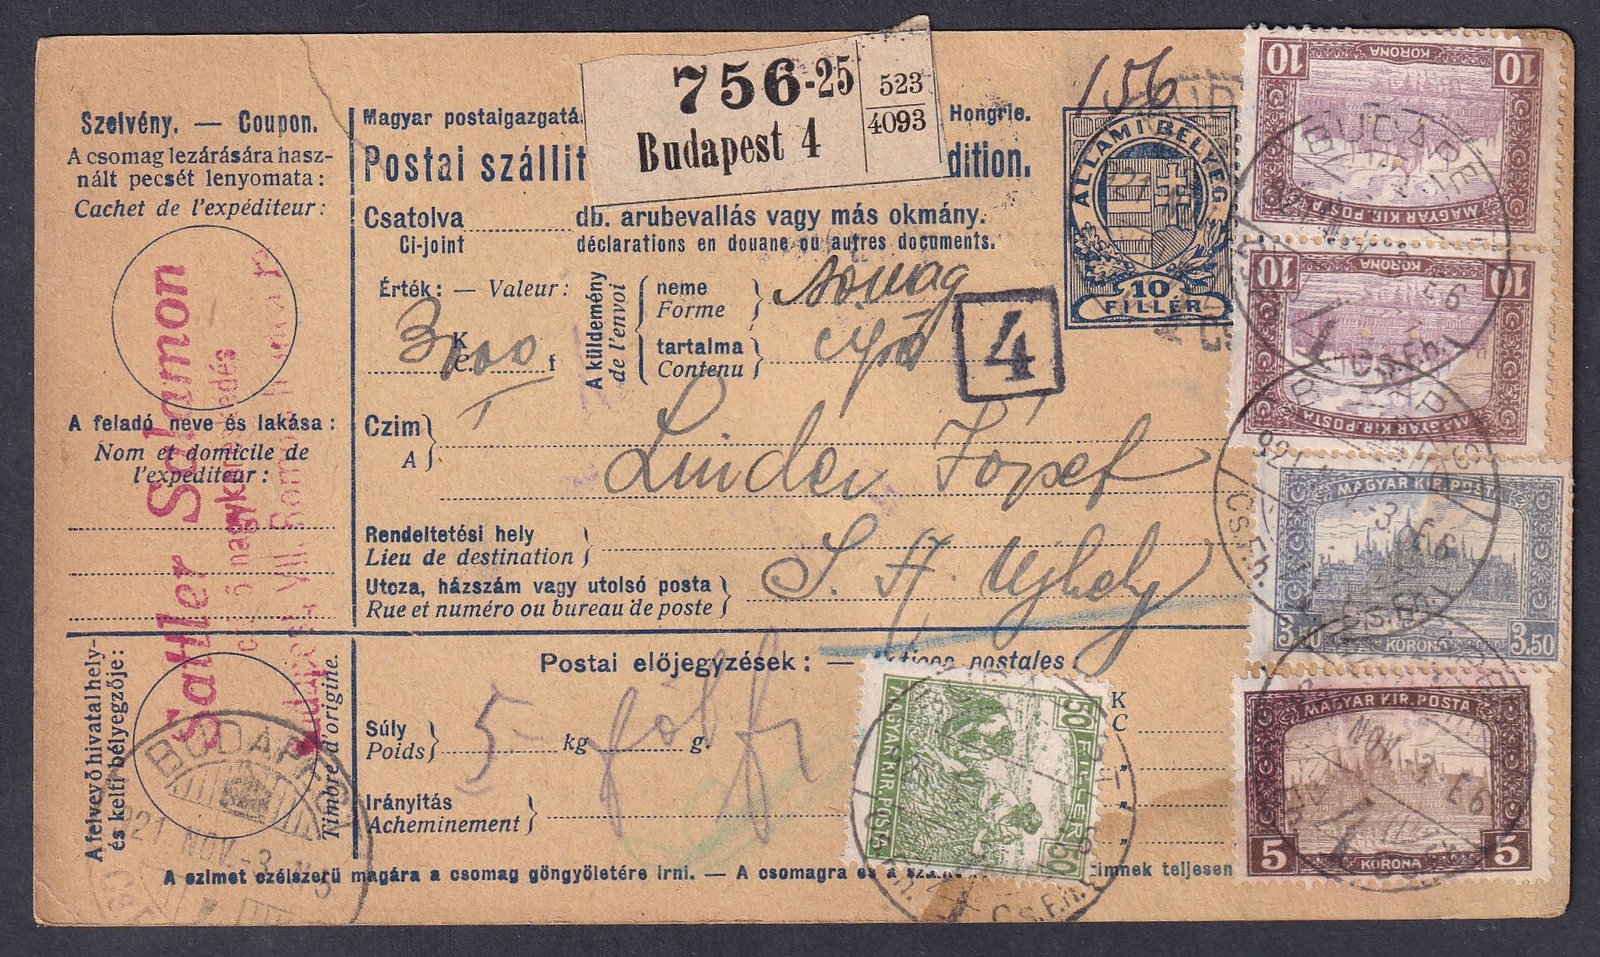 Szelvény. — Coupon.
A csomag lezárására hasz-
nált pecsét lenyomata:
Cachet de l'expéditeur:
A feladó neve és lakása:
Nom et domicile de
l'expéditeur:
Sattler Salamon
nagykereskedés
VII.
A felvevő hivatal hely-
és kelti bélyegzője:
Timbre d'origine.
BUDAPEST
921 NOV. -3
Magyar postaigazgatá
Hongrie.
Postai szállit
dition.
756-25
Budapest 4
523
4093
156
Csatolva db. árubevallás vagy más okmány.
Ci-joint déclarations en douane ou autres documents.
Érték: — Valeur:
3000 K f
A küldemény
de l'envoi
neme
Forme
tartalma
Contenu
4
ÁLLAMI BÉLYEG.
10
FILLÉR
Czim
A
Linder József
Rendeltetési hely
Lieu de destination
S. A. Ujhely
Utcza, házszám vagy utolsó posta
Rue et numéro ou bureau de poste
Postai előjegyzések: — postales
K
C
Súly
Poids
5 kg g
Irányitás
Acheminement
A czimet czélszerü magára a csomag göngyöletére irni. — A csomagra és a szál
imnek teljesen
10 KORONA 10
MAGYAR KIR. POSTA
10 KORONA 10
MAGYAR KIR. POSTA
MAGYAR KIR. POSTA
3.50 KORONA 3.50
MAGYAR KIR. POSTA
5 KORONA 5
50 FILLÉR 50
MAGYAR KIR. POSTA
BUDAPEST
921 NOV. -3. E6
CS.F.h.